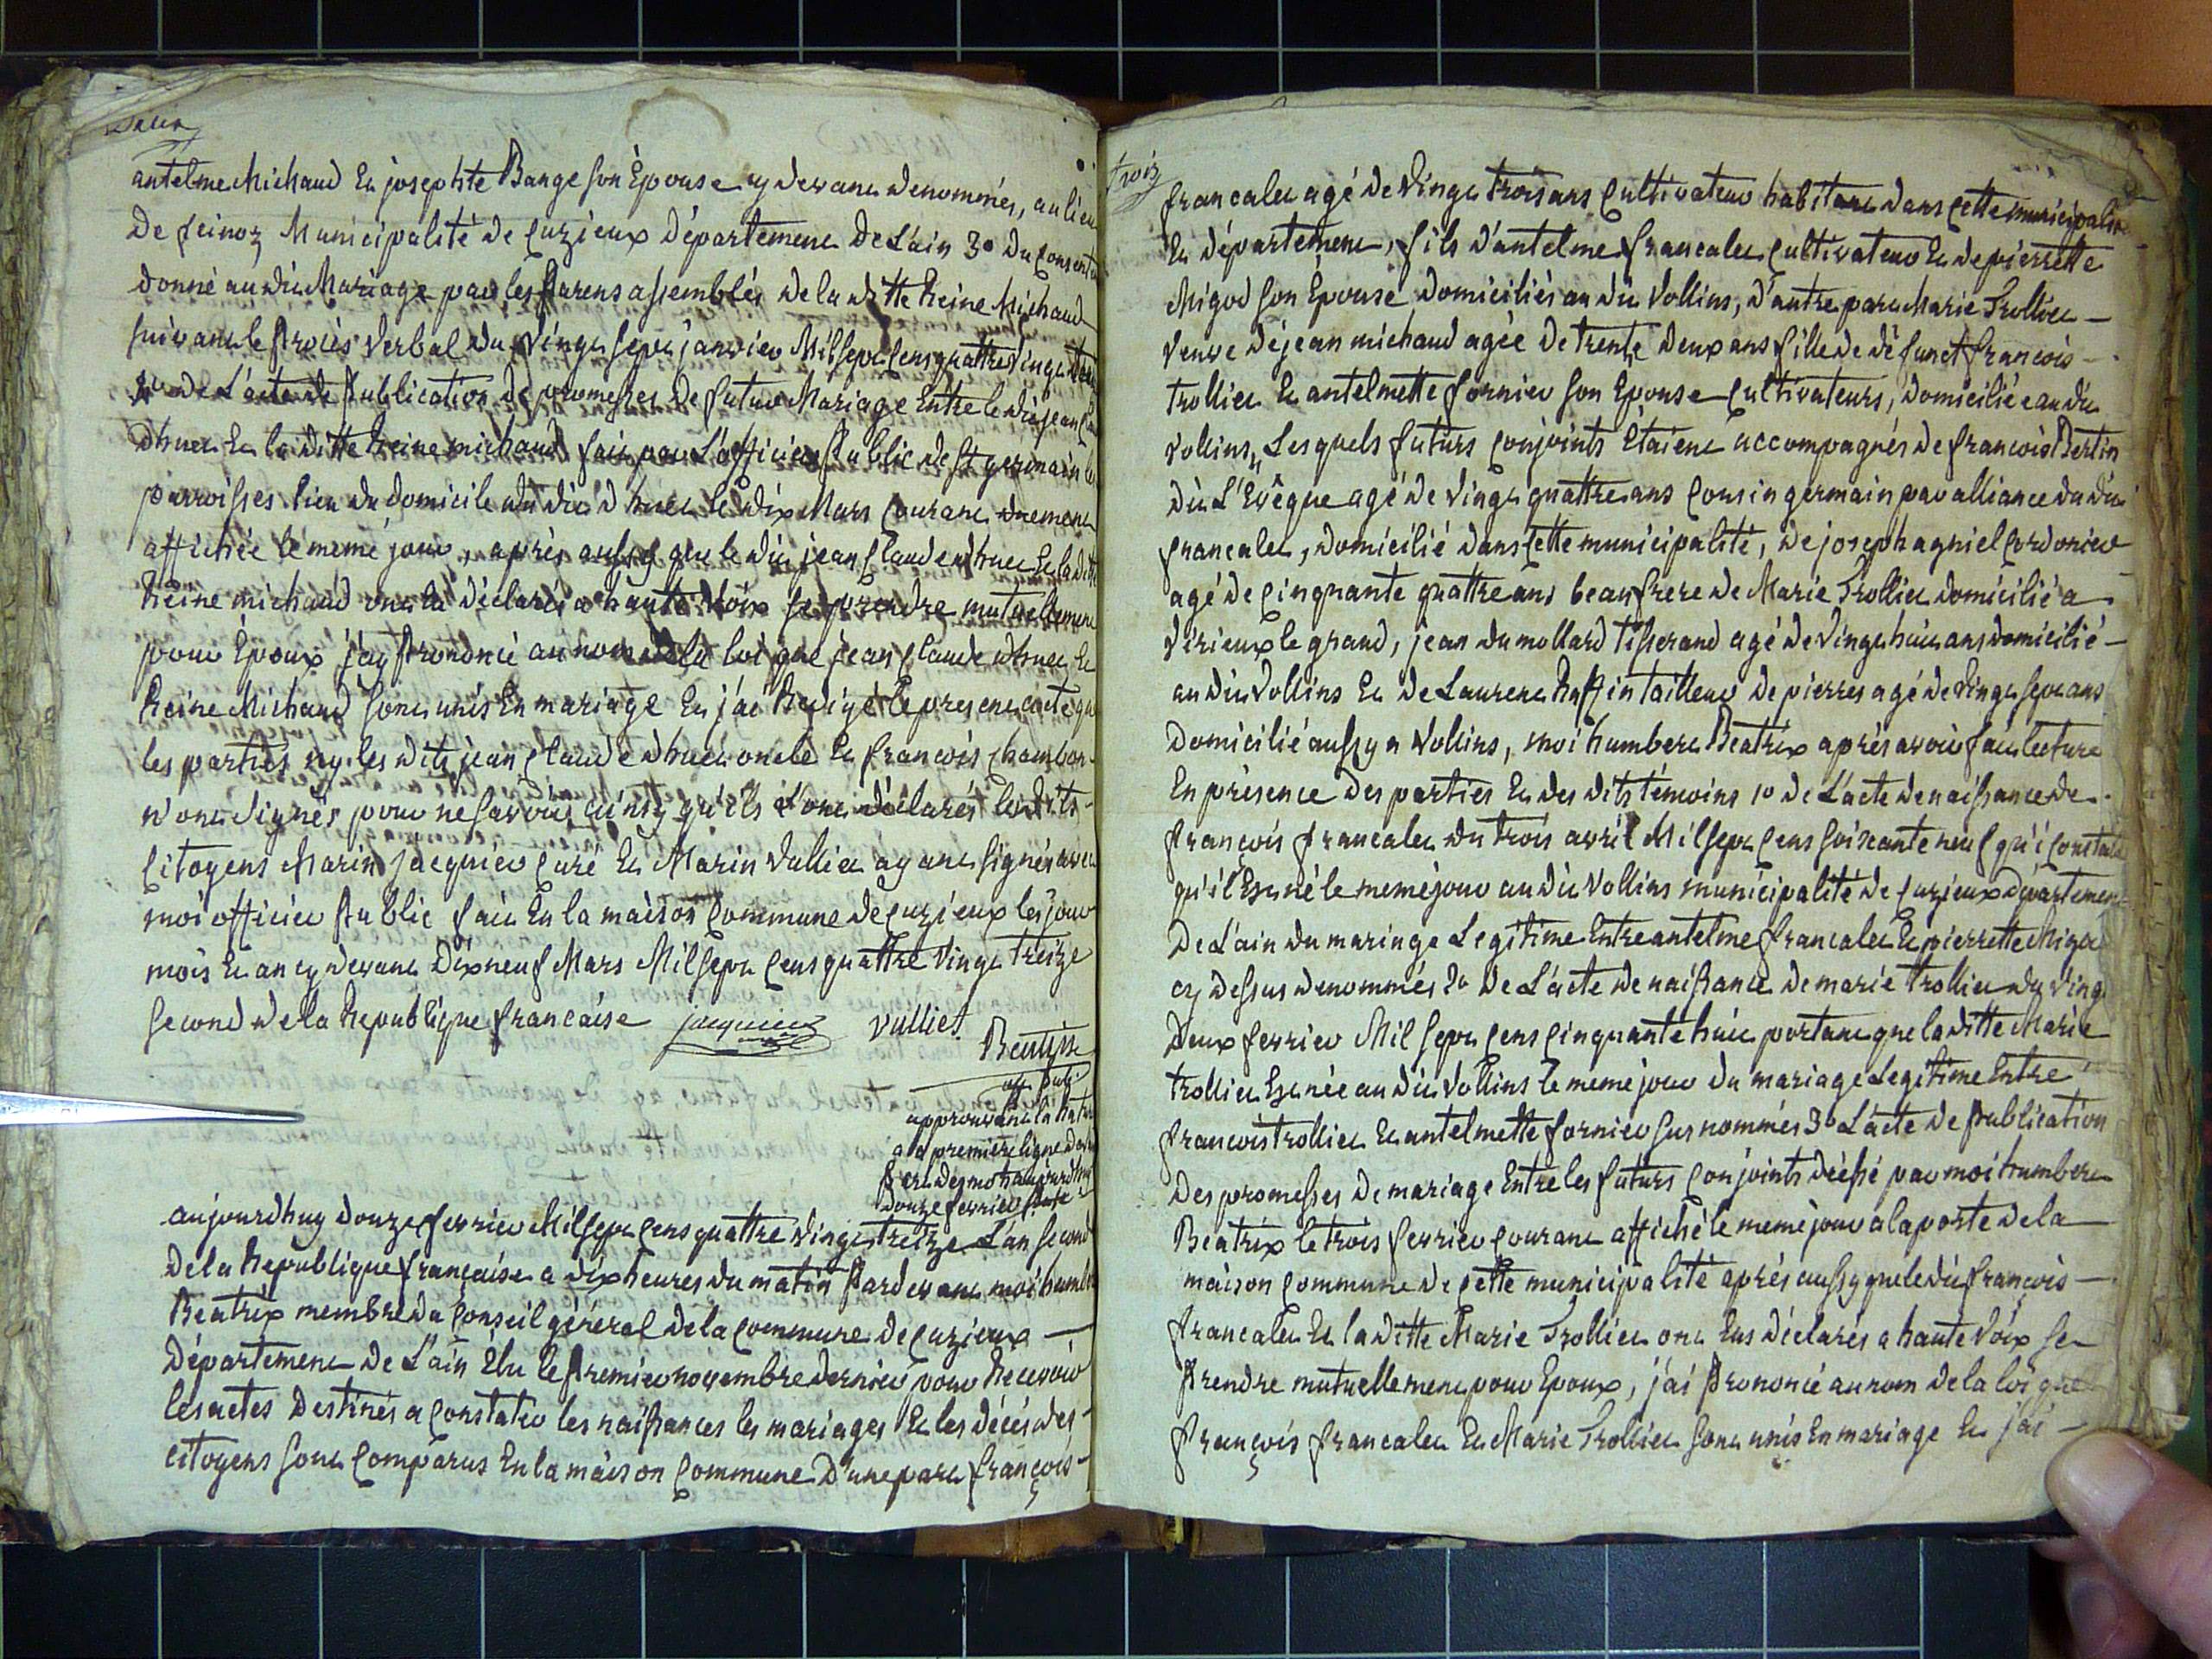 Deux
antelme Michaud Et josephte Bange son Epouse cy devant denommés, au lieu
De feinoz Municipalité de Cuzieux Département De L'ain 3° du
donné au dit Mariage par les Parens assemblés de la ditte Reine Michaud
suivant le Procès Verbal du Vingt sept janvier Mil sept Cens quattre Vingt
de L'acte de Publication de promesses De futur Mariage Entre le dit jean
dhuet Et la ditte Reine michaud fait par L'officier Public de St germain les
parroisses lieu du domicile du dit dhuet le dix Mars Courant duement
affichée le meme jour, après aussy que le dit jean Claude dhuet Et la ditte
Reine michaud ont Eu déclarés a haute Voix se prendre mutuellement
pour Epoux j'ay Prononcé au nom de la loi que jean Claude dhuet Et
Reine Michaud sont unis En mariage Et j'ai Redigé le present acte que
les parties ny les dits jean Claude dhuet oncle Et francois chambon
n'ont signés pour ne savoir ainsy qu'ils L'ont déclarés les dits
Citoyens Marin jacquier Curé Et Marin Vulliet ayant signés avec
moi officier Public fait En la maison Commune de Cuzieux les jour
mois Et an cy devant Dix neuf Mars Mil sept Cens quattre Vingt Treize
second de la Republique francaise jacquier Vulliet
off. Pub.
approuvant la
a la premiere ligne
des mots aujourdhuy
douze fevrier
aujourdhuy douze fevrier Mil sept Cens quattre Vingt treize L'an second
De la Republique française a dix heures du matin Pardevant moi humbert
Beatrix membre du Conseil général de la Commune de Cuzieux
Département De L'ain Elu le Premier novembre dernier pour Recevoir
les actes Destinés a Constater les naissances les mariages Et les décés des
citoyens sont Comparus En la maison Commune D'une part françois
trois
francalet agé de Vingt trois ans Cultivateur habitant dans Cette municipalité
Et département, fils d'antelme francalet Cultivateur Et de pierrette
Migod son Epouse domiciliés au dit Vollins, d'autre part Marie Trolliet
Veuve de jean michaud agée De trente deux ans fille de défunct francois
trolliet Et antelmette fornier son Epouse Cultivateurs, domiciliée au dit
Vollins, Lesquels futurs Conjoints Etaient accompagnés de francois Bertin
dit L'Evêque agé de Vingt quattre ans Cousin germain par alliance du dit
francalet, domicilié dans Cette municipalité, de joseph agniel Cordonier
agé de Cinquante quattre ans beaufrere de Marie Trolliet domicilié a
Virieux le grand, jean dumollard Tisserand agé de Vingt huit ans domicilié
au dit Vollins Et de Laurent Ruffin tailleur de pierres agé de Vingt sept ans
Domicilié aussy a Vollins, moi humbert Beatrix après avoir fait lecture
En présence des parties Et des dits témoins 1° de L'acte de naissance de
françois francalet du trois avril Mil sept Cens soixante neuf qui Constate
qu'il Est né le meme jour au dit Vollins municipalité de Cuzieux département
De L'ain du mariage Legitime Entre antelme francalet Et pierrette Migod
cy dessus denommés 2° De L'acte de naissance de marie trolliet du Vingt
Deux fevrier Mil sept Cens Cinquante huit portant que la ditte Marie
trolliet Est née au dit Vollins le meme jour du mariage Legitime Entre
francois trolliet Et antelmette fornier sus nommés 3° L'acte de Publication
Des promesses De mariage Entre les futurs Conjoints dréssé par moi humbert
Beatrix le trois fevrier Courant affiché le meme jour a la porte de la
maison Commune de Cette municipalité après aussy que le dit françois
francalet Et la ditte Marie Trolliet ont Eus déclarés a haute Voix se
Prendre mutuellement pour Epoux, j'ai Prononcé au nom de la loi que
françois francalet Et Marie Trolliet sont unis En mariage Et j'ai